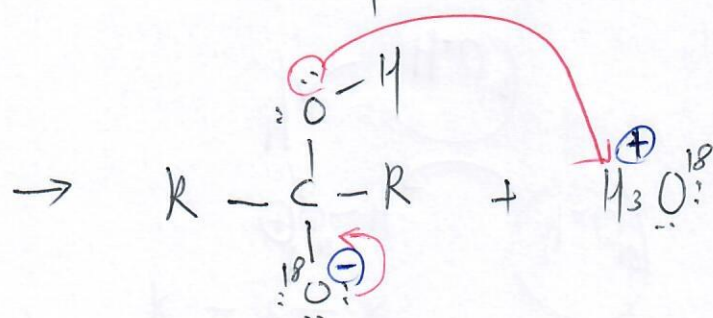 O - H
→ R - C - R + H3O18 +
18O -